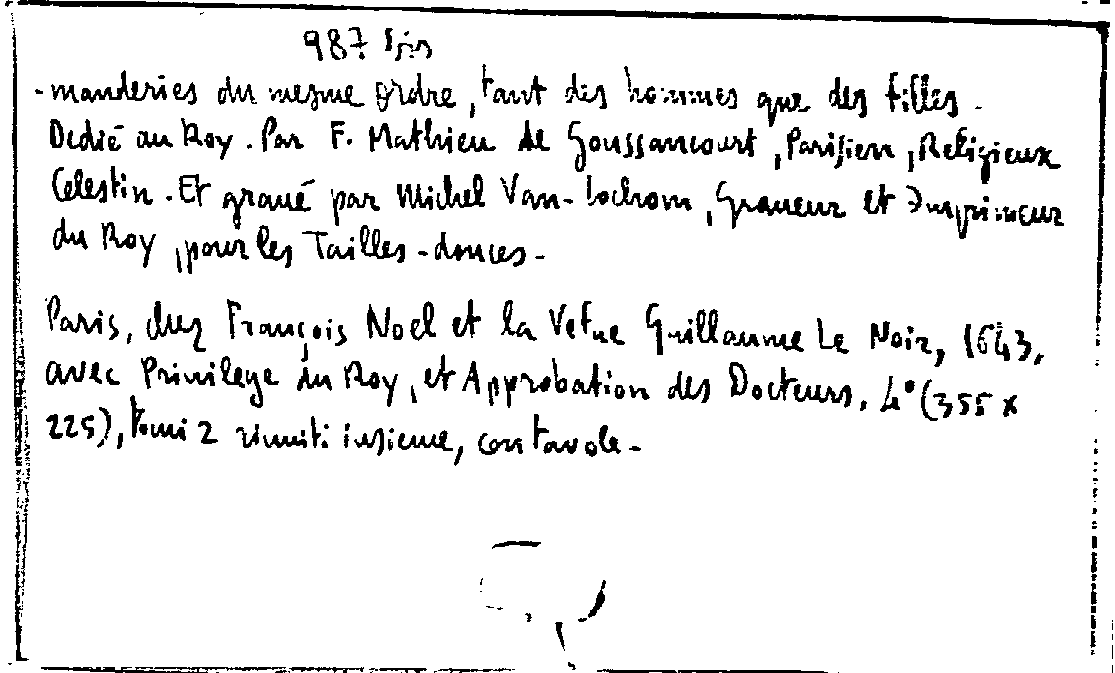 987 bis
-manderies du mesme Ordre, tant des hommes que des filles.
Dedié au Roy. Par F. Mathieu de Goussancourt, Parisien, Religieux
Celestin. Et graué par Michel Van-Lochom, Graueur et Imprimeur
du Roy, pour les Tailles-douces.
Paris, chez François Noel et la Vefue Guillaume Le Noir, 1643,
avec Privilege du Roy, et Approbation des Docteurs, 4° (355 x
225), tomi 2 riuniti insieme, con tavole.